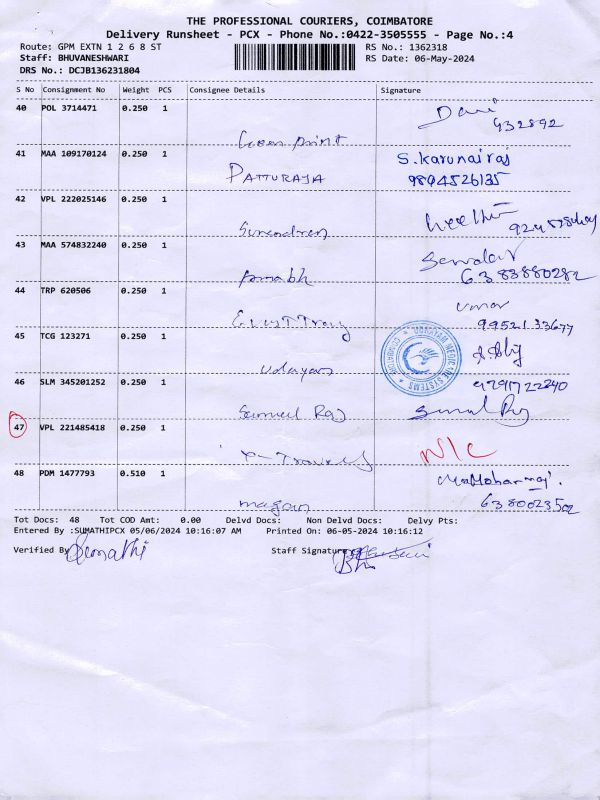 THE PROFESSIONAL COURIERS, COIMBATORE
Delivery Runsheet - PCX - Phone No.:0422-3505555 - Page No.:4
Route: GPM EXTN 1 2 6 8 ST
RS No.: 1362318
Staff: BHUVANESHWARI
RS Date: 06-May-2024
DRS No.: DCJB136231804
S No Consignment No Weight PCS Consignee Details Signature
40 POL 3714471 0.250 1
932892
41 MAA 109170124 0.250 1
PATTURAJA
S. Karunairaj
9894526135
42 VPL 222025146 0.250 1
Surendren
43 MAA 574832240 0.250 1
6383880282
44 TRP 620506 0.250 1
99521 33677
45 TCG 123271 0.250 1
Udayan
MEDICINE SYSTEMS
46 SLM 345201252 0.250 1
Samuel Raj
47 VPL 221485418 0.250 1
N/C
48 PDM 1477793 0.510 1
magan
6380023502
Tot Docs: 48 Tot COD Amt: 0.00 Delvd Docs: Non Delvd Docs: Delvy Pts:
Entered By :SUMATHIPCX 05/06/2024 10:16:07 AM Printed On: 06-05-2024 10:16:12
Verified By Sumathi Staff Signature